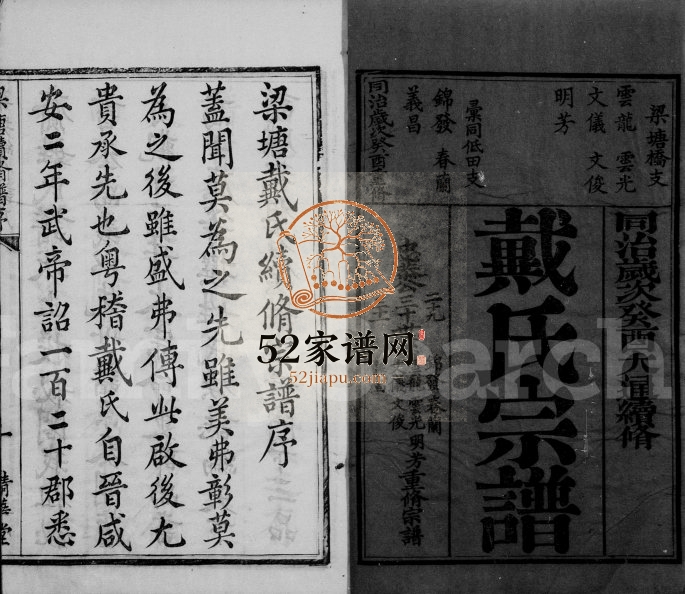 同治歲次癸酉大通續脩
戴氏宗譜
梁塘橋支
雲龍 雲光
文儀 文俊
明芳
彙同低田支
錦發 春蘭
義昌
同治歲次癸酉
二元
雲光明芳重脩宗譜
文俊
梁塘戴氏續脩宗譜序
蓋聞莫為之先雖美弗彰莫
為之後雖盛弗傳此啟後尤
貴承先也粵稽戴氏自晉咸
安二年武帝詔一百二十郡悉
梁塘續脩譜序
一
清華堂
52家谱网
52jiapu.com